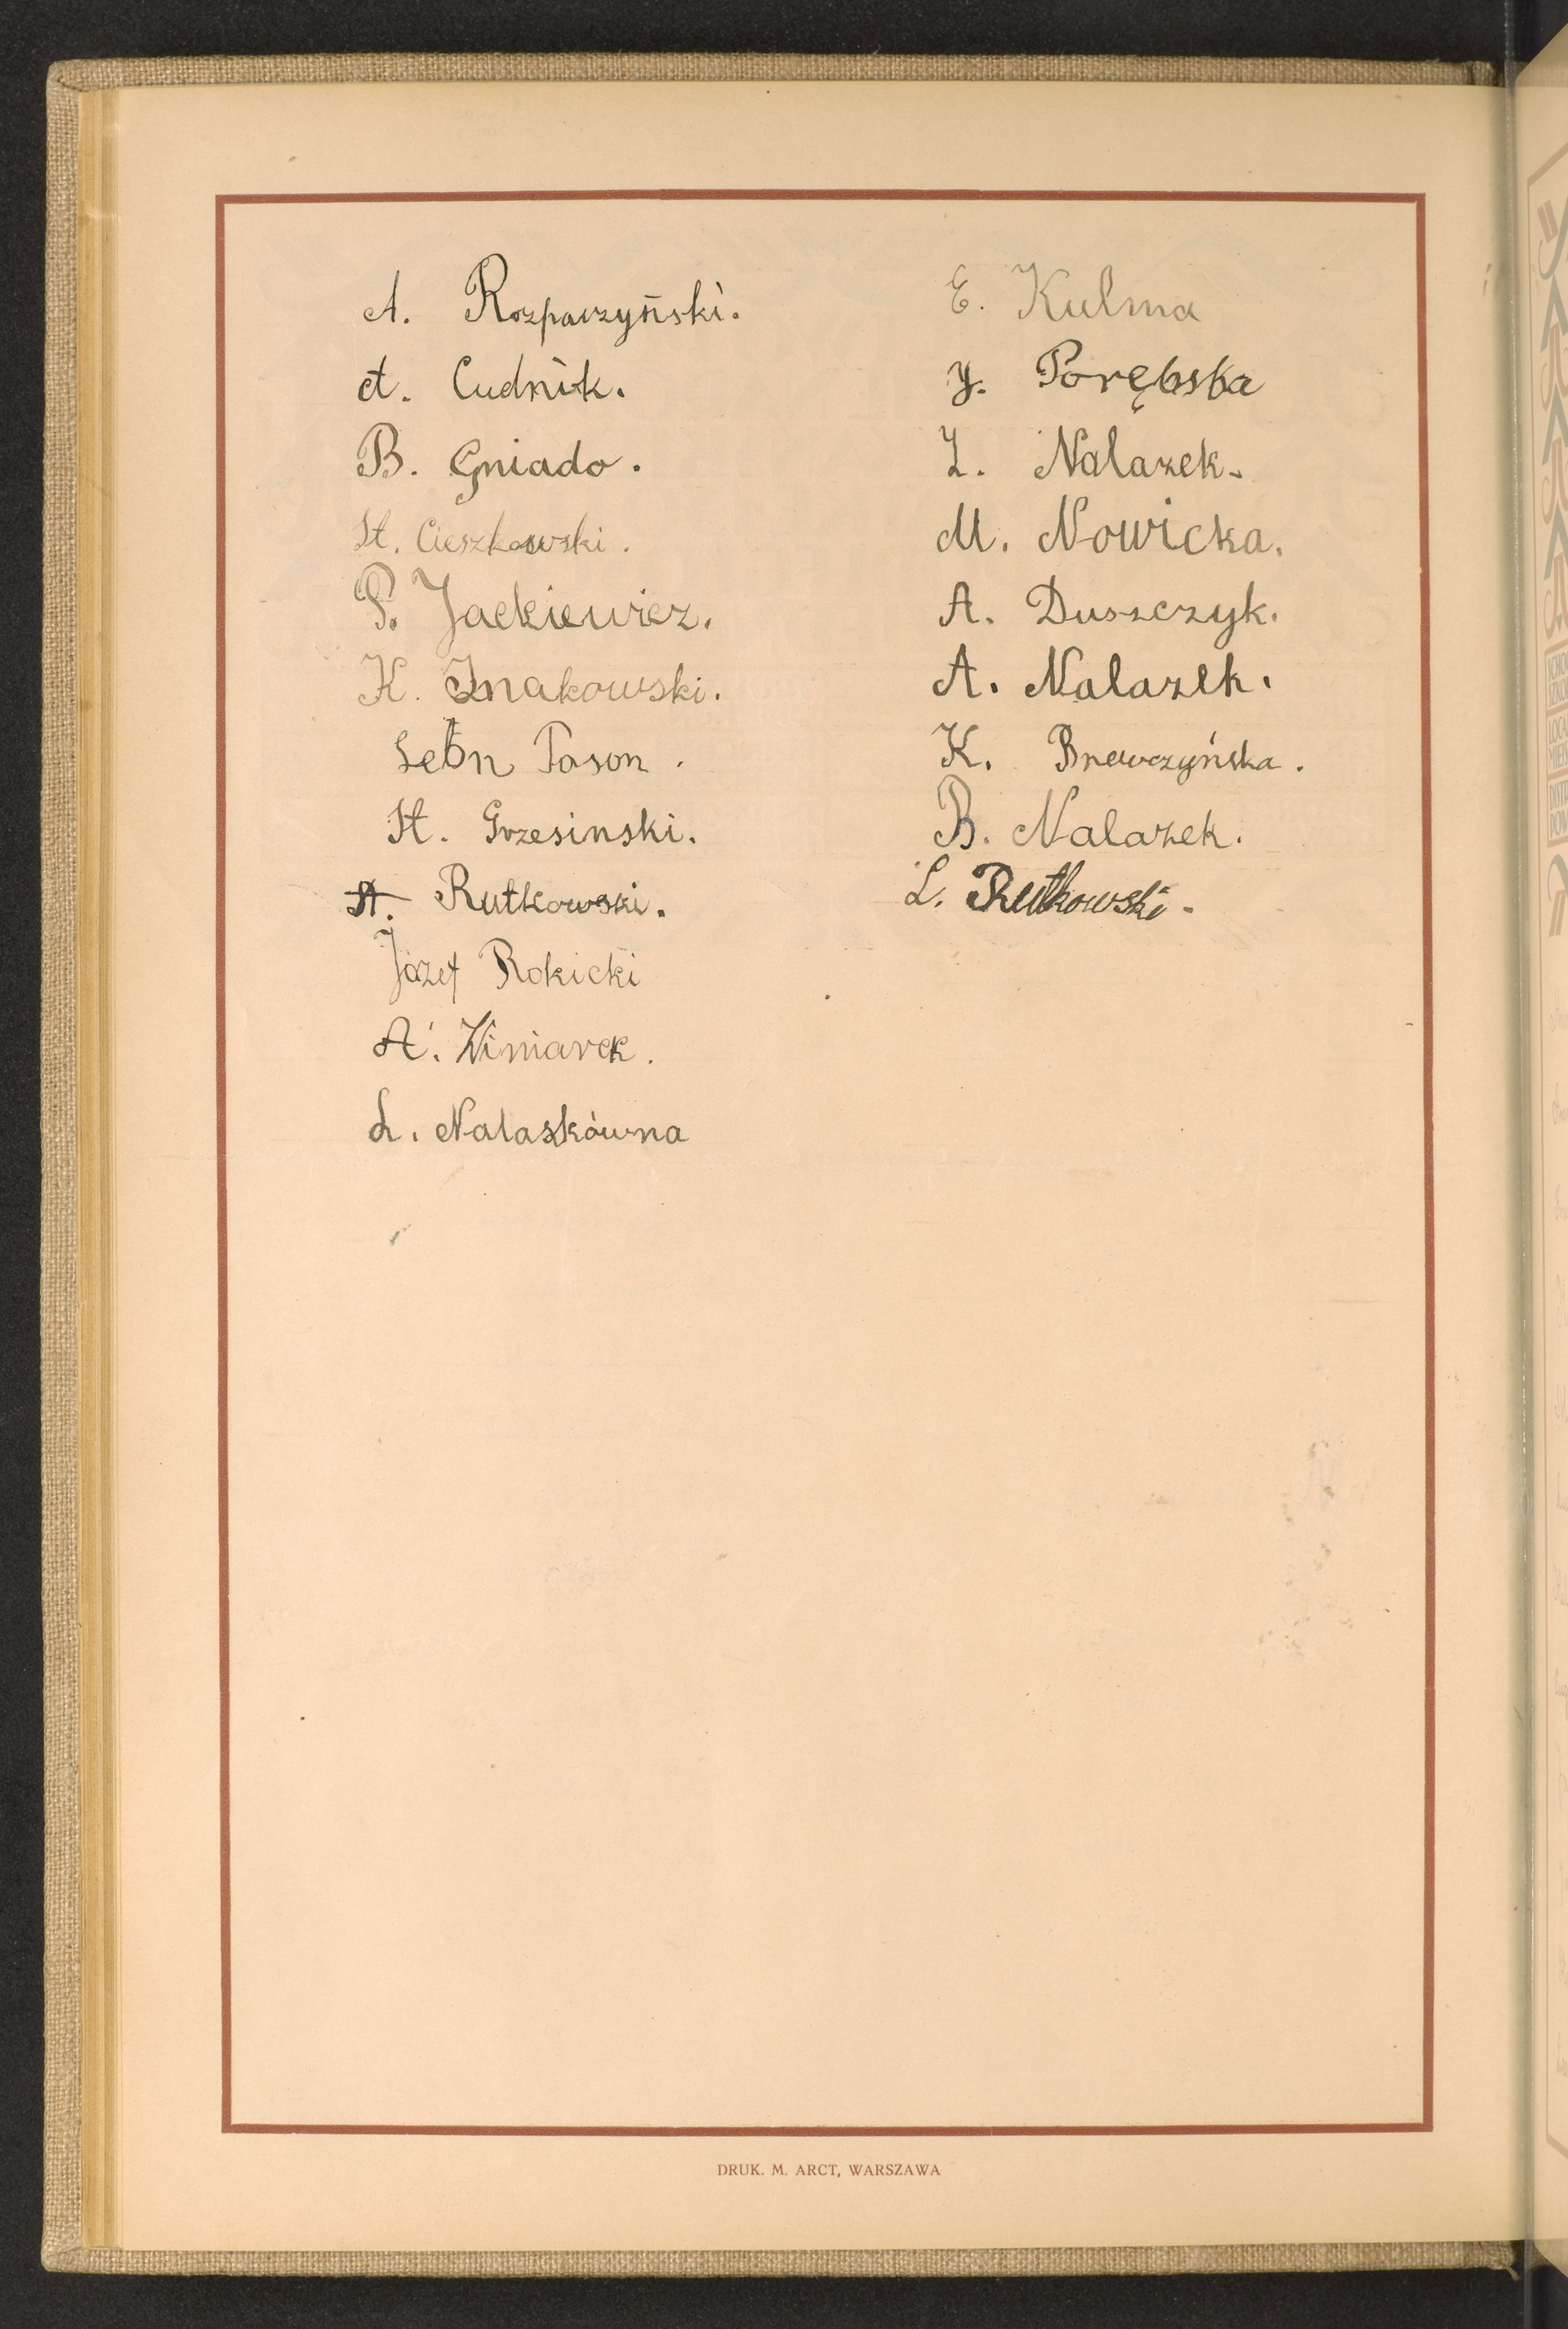 A. Rozparzyński.
A. Cudnik.
B. Gniado.
St. Cieszkowski.
P. Jackiewicz.
K. Znakowski.
Leon Pason.
St. Grzesinski.
A. Rutkowski.
Józef Rokicki
A. Winiarek.
L. Nalaskówna
E. Kulma
J. Porębska
L. Nalazek.
M. Nowicka.
A. Duszczyk.
A. Nalazek.
K. Brewczyńska.
B. Nalazek.
L. Rutkowski.
DRUK. M. ARCT, WARSZAWA